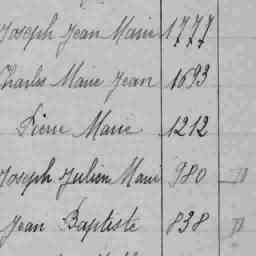 Joseph Jean Marie 1777
Charles Marie Jean 1693
Pierre Marie 1212
Joseph Julien Marie 980
Jean Baptiste 838